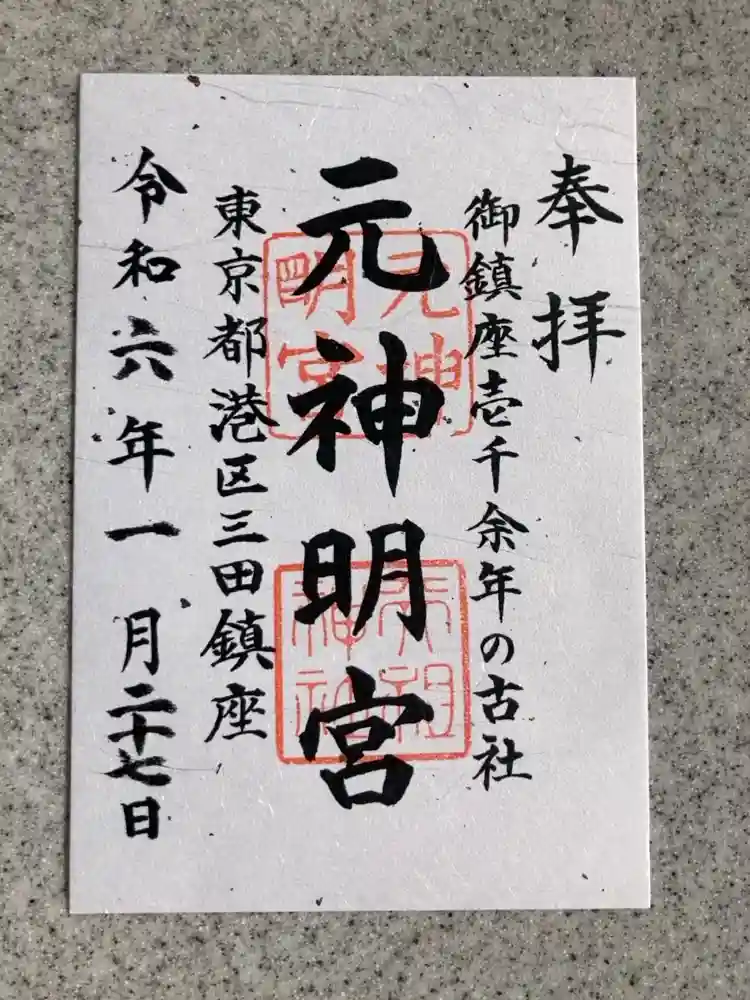 奉拝
御鎮座壱千余年の古社
元神明宮
東京都港区三田鎮座
令和六年一月二十七日
元神明宮
天祖神社